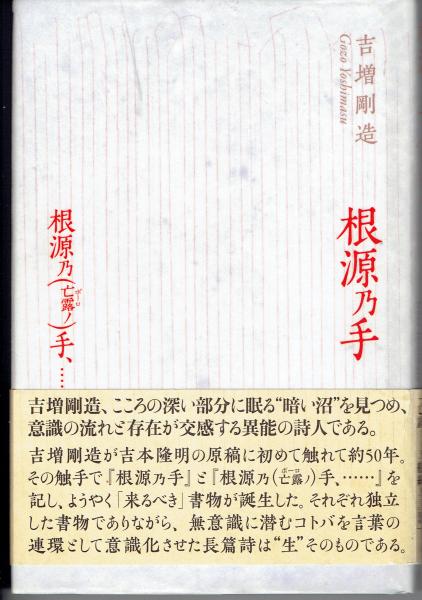 吉増剛造
Gozo Yoshimasu
根源乃手
根源乃(亡露ノ)手、……
ボーロ
吉増剛造、こころの深い部分に眠る“暗い沼”を見つめ、
意識の流れと存在が交感する異能の詩人である。
吉増剛造が吉本隆明の原稿に初めて触れて約50年。
その触手で『根源乃手』と『根源乃(亡露ノ)手、……』を
ボーロ
記し、ようやく「来るべき」書物が誕生した。それぞれ独立
した書物でありながら、無意識に潜むコトバを言葉の
連環として意識化させた長篇詩は“生”そのものである。